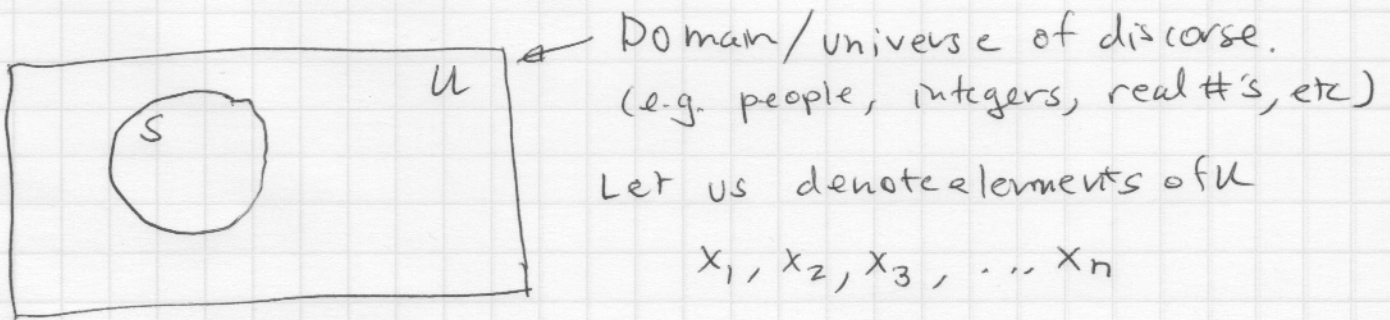 Domain/universe of discorse.
U
(e.g. people, integers, real #'s, etc)
S
Let us denote elements of U
x₁, x₂, x₃, .... xₙ